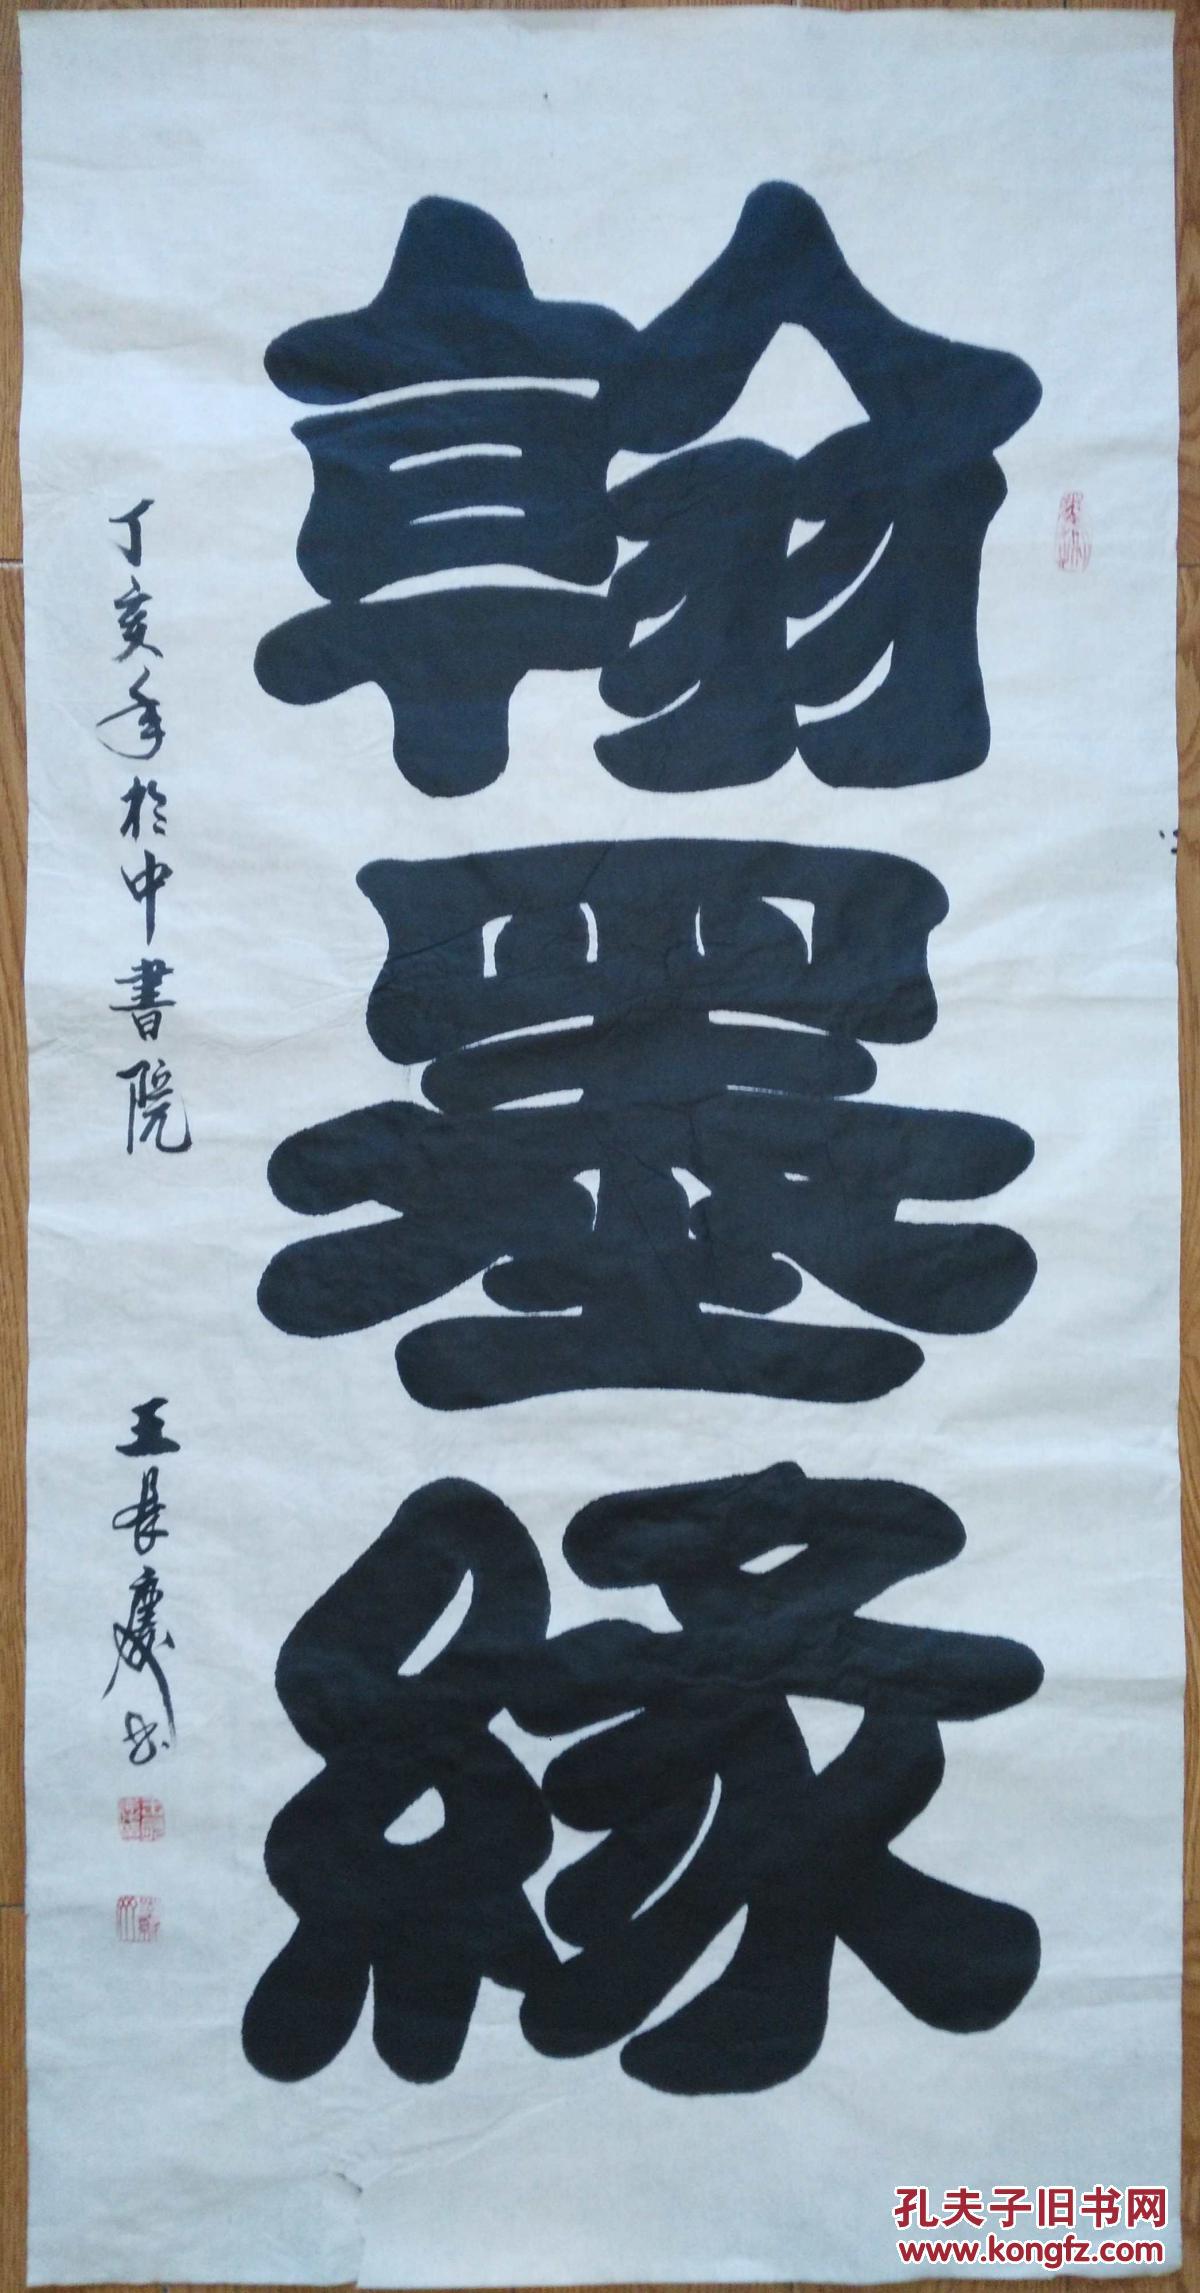 翰墨緣
丁亥年於中書院
王長慶书
孔夫子旧书网
www.kongfz.com